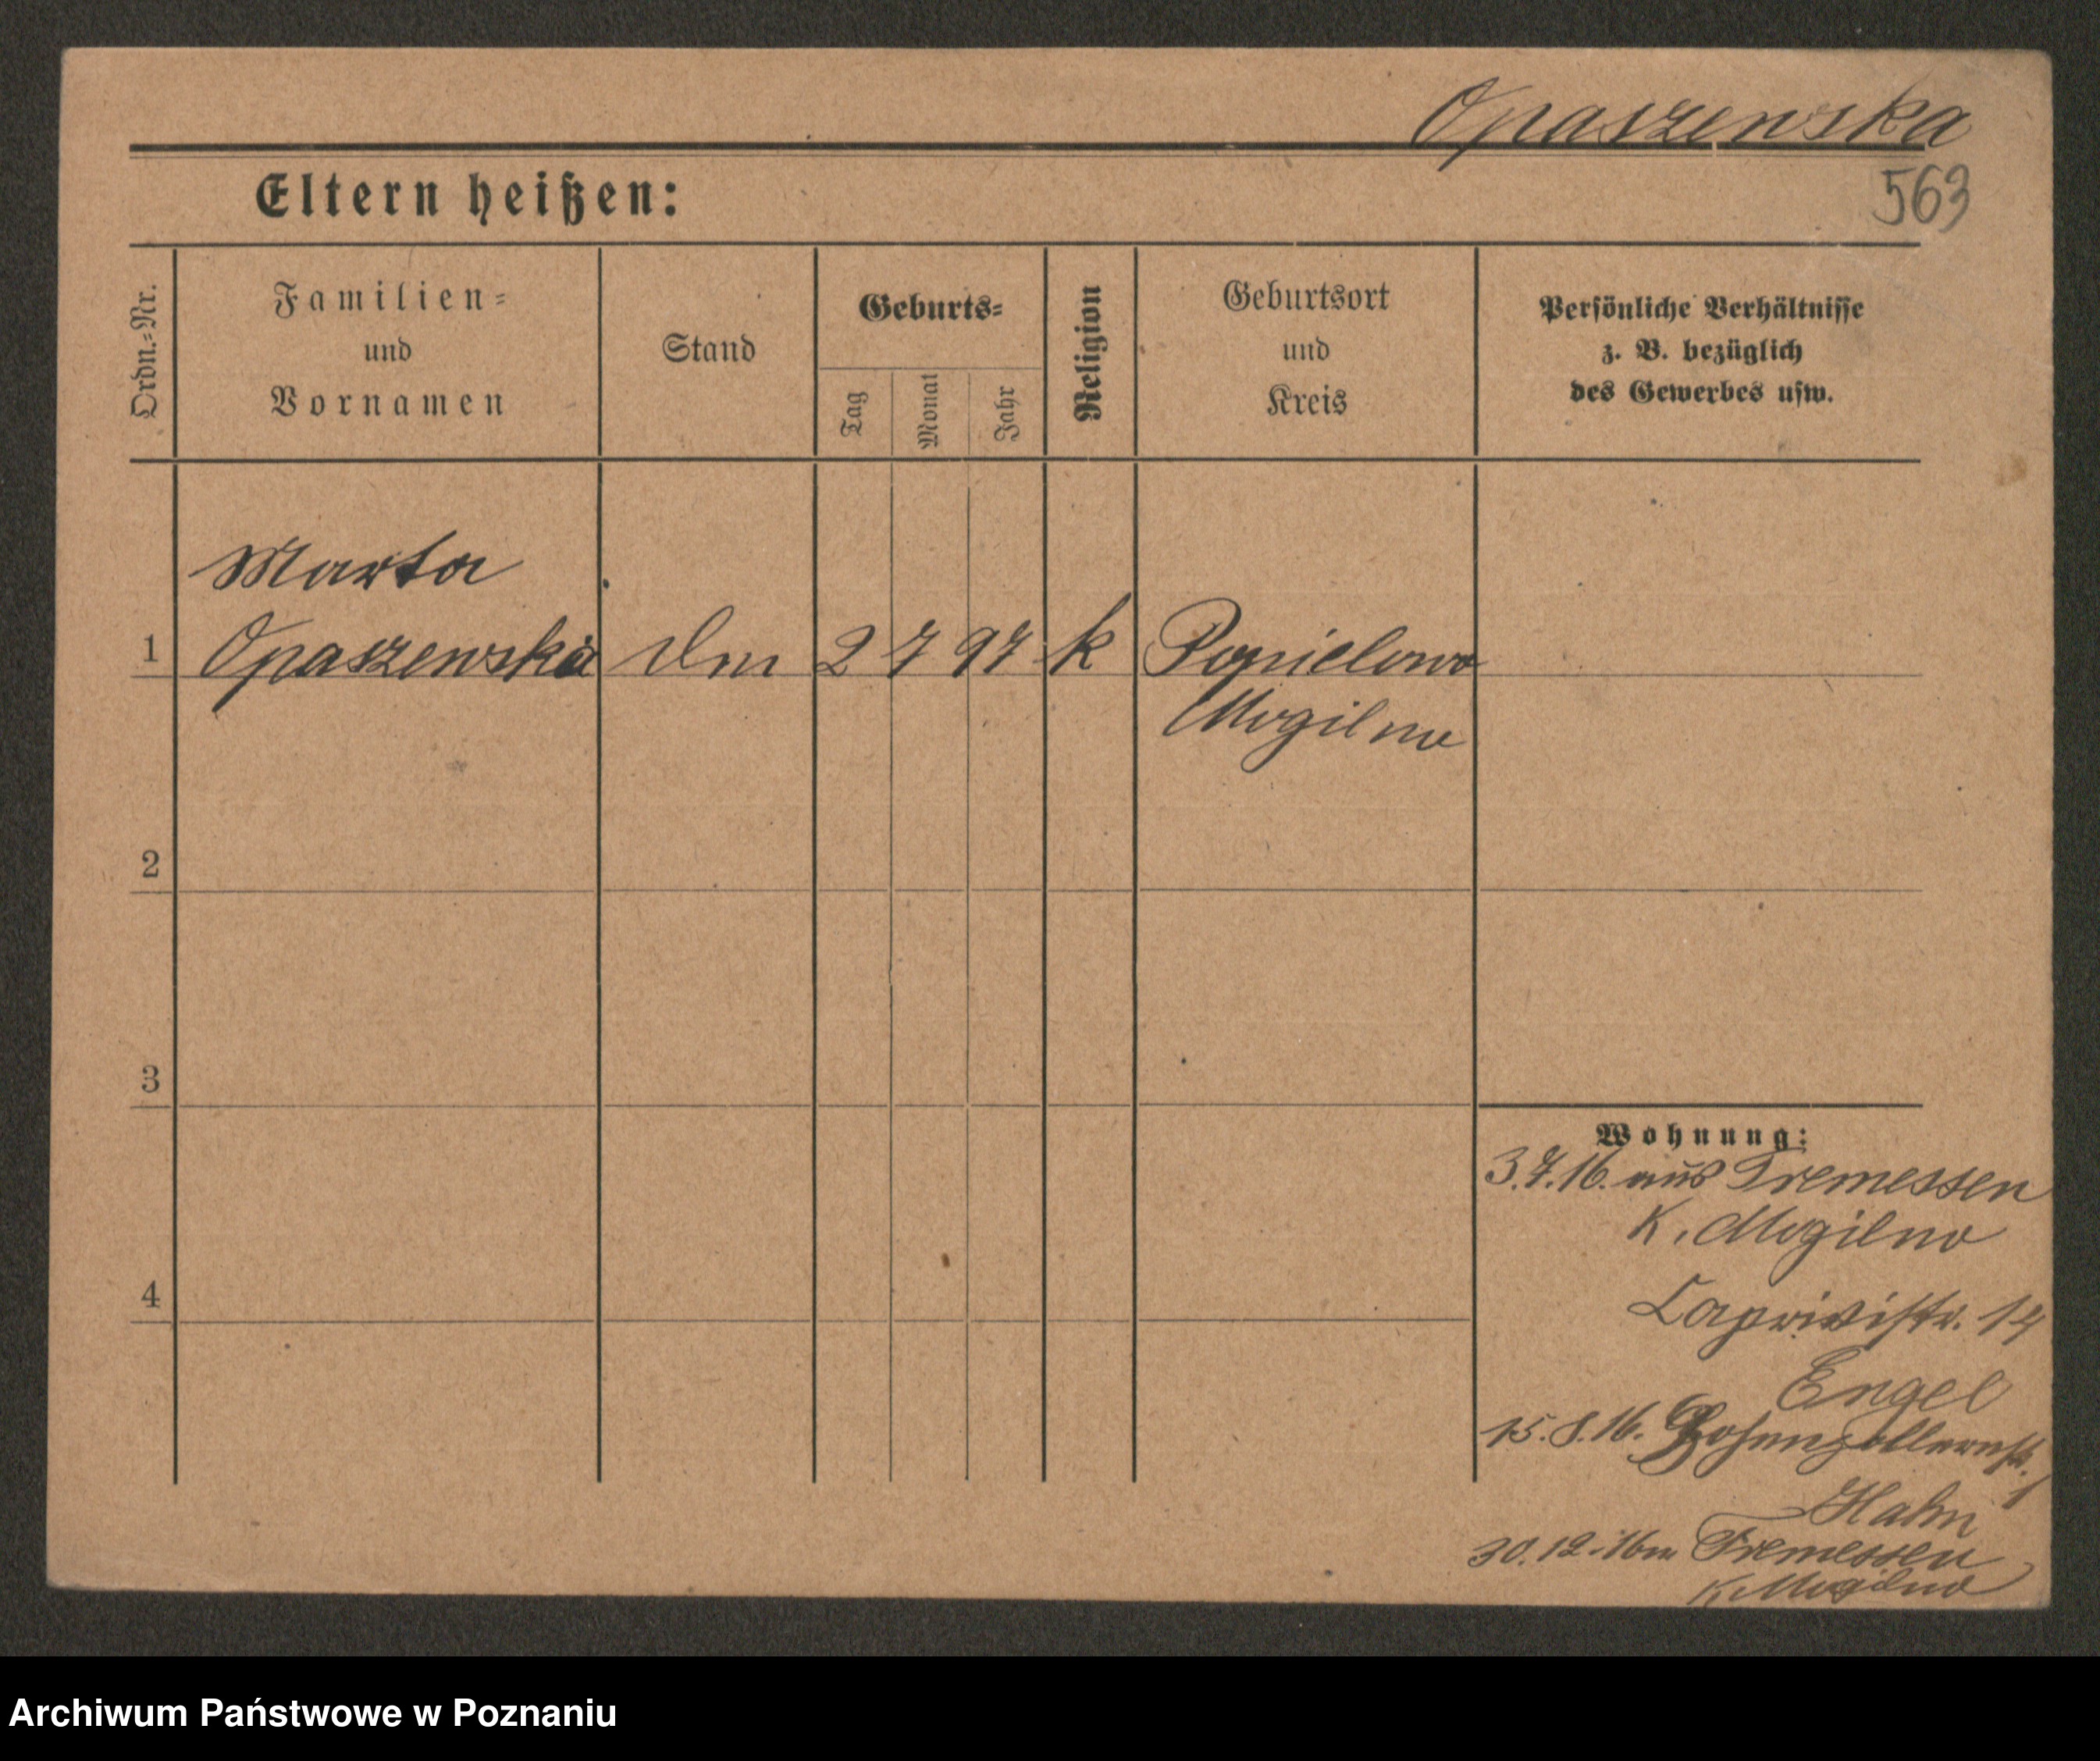 Opaszewska
563
Eltern heißen:
Ordn.-Nr.
Familien-
und
Vornamen
Stand
Geburts-
Tag
Monat
Jahr
Religion
Geburtsort
und
Kreis
Persönliche Verhältnisse
z. B. bezüglich
des Gewerbes usw.
Marta
1 Opaszewska Dm 2 7 97 k Popielowo
Mogilno
2
3
4
Wohnung:
3.7.16. aus Tremessen
K. Mogilno
Caprivistr. 14
Engel
15.8.16. Hohenzollernstr. 1
Hahn
30.12.16 n Tremessen
K Mogilno
Archiwum Państwowe w Poznaniu